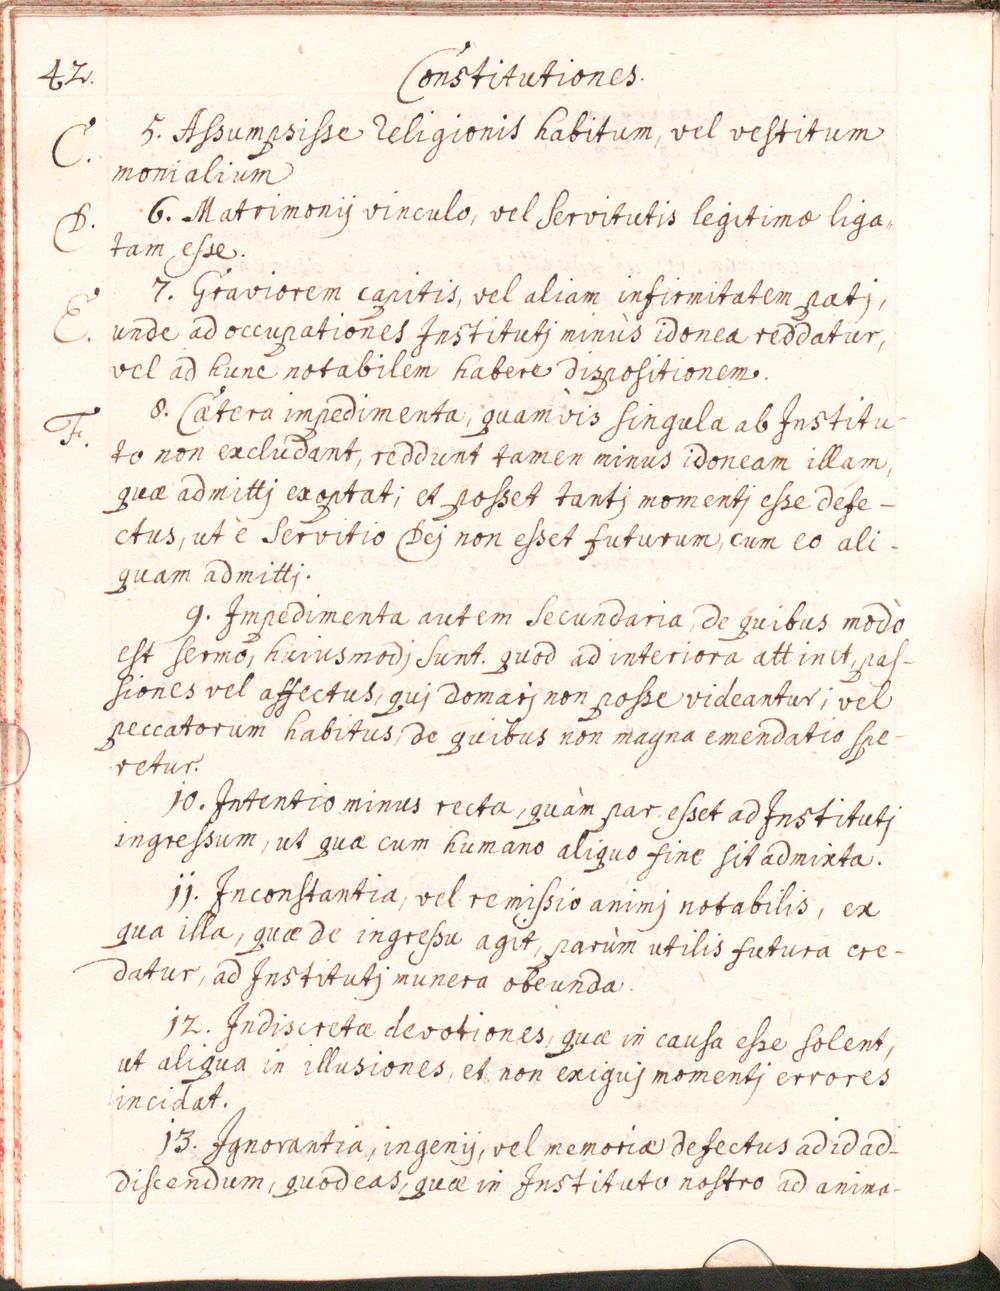 42.
Constitutiones.
C. 5. Assumpsisse religionis habitum, vel vestitum
monialium
D. 6. Matrimonij vinculo, vel servitutis legitimæ liga„
tam esse.
E. 7. Graviorem capitis, vel aliam infirmitatem patj,
unde ad occupationes Institutj minùs idonea reddatur,
vel ad hunc notabilem habere dispositionem.
F. 8. Cætera impedimenta, quamvis singula ab Institu-
to non excludant, reddunt tamen minus idoneam illam,
quæ admittj exoptat; et posset tantj momentj esse defe-
ctus, ut è servitio Dej non esset futurum, cum eo ali-
quam admittj.
9. Impedimenta autem secundaria, de quibus modò
est sermo, huiusmodj sunt. quod ad interiora attinet, pas-
siones vel affectus, quj domarj non posse videantur; vel
peccatorum habitus, de quibus non magna emendatio spe-
retur.
10. Intentio minus recta, quàm par esset ad Institutj
ingressum, ut quæ cum humano aliquo fine sit admixta.
11. Inconstantia, vel remissio animj notabilis, ex
qua illa, quæ de ingressu agit, parùm utilis futura cre-
datur, ad Institutj munera obeunda.
12. Indiscretæ devotiones, quæ in causa esse solent,
ut aliqua in illusiones, et non exiguj momentj errores
incidat.
13. Ignorantia, ingenij, vel memoriæ defectus ad id ad-
discendum, quod eas, quæ in Instituto nostro ad anima-